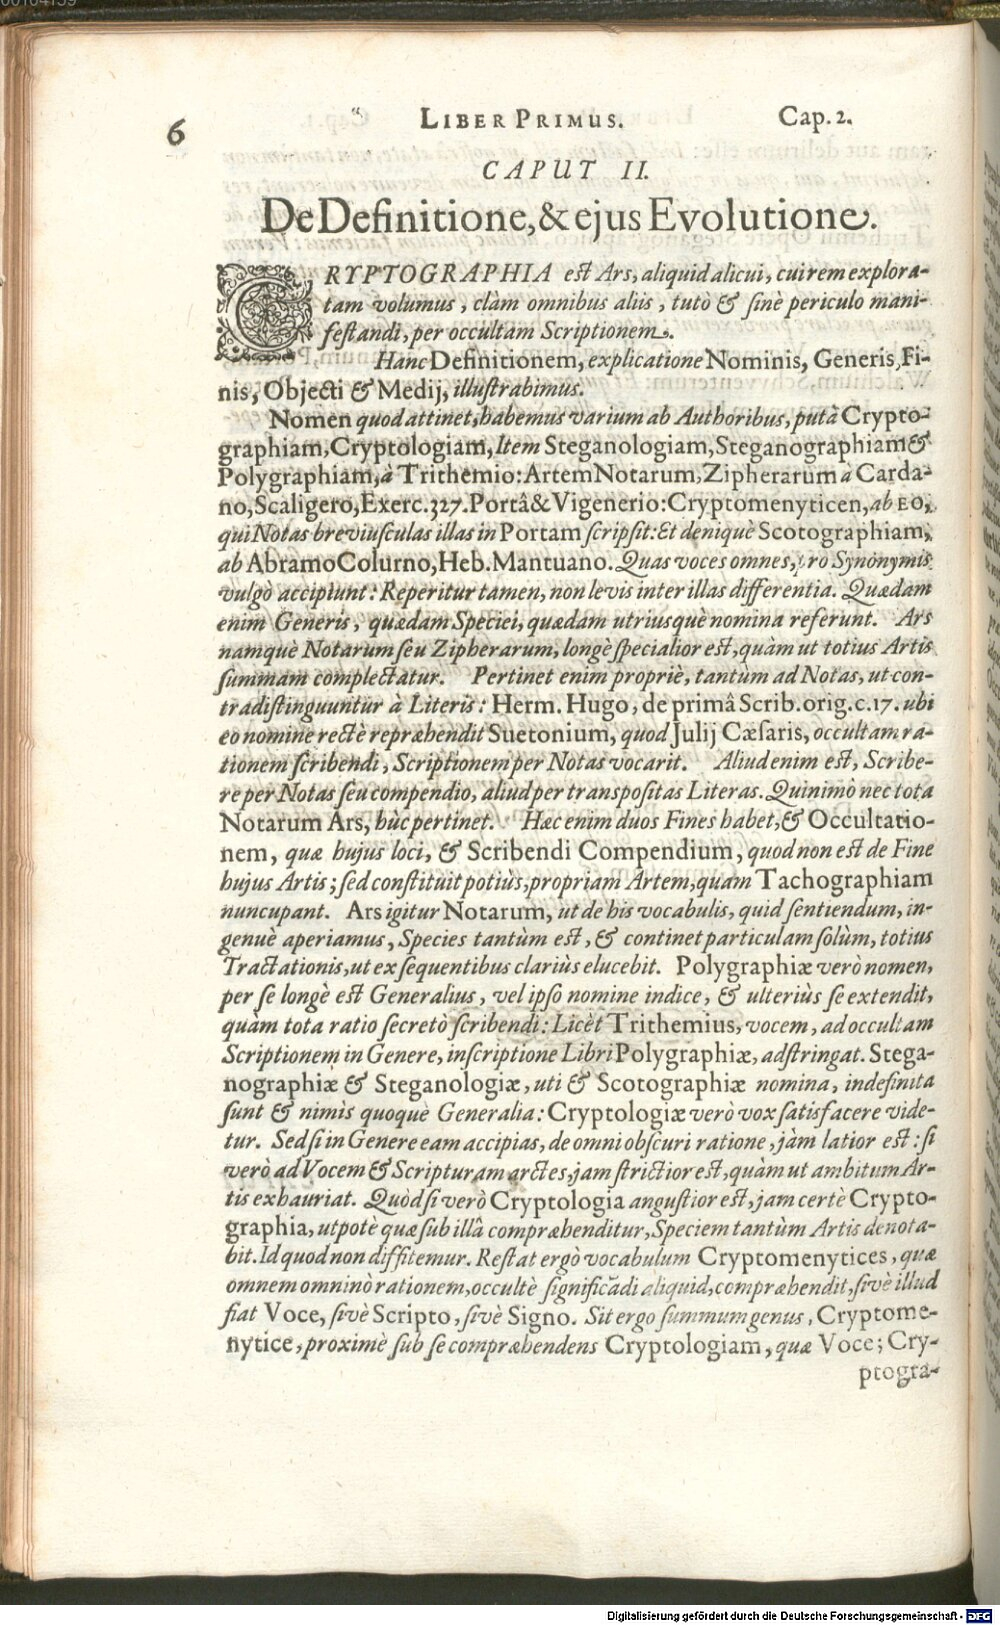 6 LIBER PRIMUS. Cap. 2.
CAPUT II.
De Definitione, & ejus Evolutione.
CRYPTOGRAPHIA est Ars, aliquid alicui, cui rem explora-
tam volumus, clàm omnibus aliis, tutò & sinè periculo mani-
festandi, per occultam Scriptionem.
Hanc Definitionem, explicatione Nominis, Generis, Fi-
nis, Objecti & Medij, illustrabimus.
Nomen quod attinet, habemus varium ab Authoribus, putà Crypto-
graphiam, Cryptologiam, Item Steganologiam, Steganographiam &
Polygraphiam, à Trithemio: Artem Notarum, Zipherarum à Carda-
no, Scaligero, Exerc. 327. Portâ & Vigenerio: Cryptomenyticen, ab EO,
qui Notas breviusculas illas in Portam scripsit: Et deniquè Scotographiam,
ab Abramo Colurno, Heb. Mantuano. Quas voces omnes, pro Synonymis
vulgò accipiunt: Reperitur tamen, non levis inter illas differentia. Quædam
enim Generis, quædam Speciei, quædam utriusquè nomina referunt. Ars
namquè Notarum seu Zipherarum, longè specialior est, quàm ut totius Artis
summam complectatur. Pertinet enim propriè, tantùm ad Notas, ut con-
tradistinguuntur à Literis: Herm. Hugo, de primâ Scrib. orig. c. 17. ubi
eo nomine rectè repræhendit Suetonium, quod Julij Cæsaris, occultam ra-
tionem scribendi, Scriptionem per Notas vocarit. Aliud enim est, Scribe-
re per Notas seu compendio, aliud per transpositas Literas. Quinimò nec tota
Notarum Ars, hùc pertinet. Hæc enim duos Fines habet, & Occultatio-
nem, quæ hujus loci, & Scribendi Compendium, quod non est de Fine
hujus Artis; sed constituit potiùs, propriam Artem, quam Tachographiam
nuncupant. Ars igitur Notarum, ut de his vocabulis, quid sentiendum, in-
genuè aperiamus, Species tantùm est, & continet particulam solùm, totius
Tractationis, ut ex sequentibus clariùs elucebit. Polygraphiæ verò nomen,
per se longè est Generalius, vel ipso nomine indice, & ulteriùs se extendit,
quàm tota ratio secretò scribendi: Licèt Trithemius, vocem, ad occultam
Scriptionem in Genere, inscriptione Libri Polygraphiæ, adstringat. Stega-
nographiæ & Steganologiæ, uti & Scotographiæ nomina, indefinita
sunt & nimìs quoquè Generalia: Cryptologiæ verò vox satisfacere vide-
tur. Sed si in Genere eam accipias, de omni obscuri ratione, jàm latior est: si
verò ad Vocem & Scripturam arctes, jam strictior est, quàm ut ambitum Ar-
tis exhauriat. Quòd si verò Cryptologia angustior est, jam certè Crypto-
graphia, utpotè quæ sub illâ compræhenditur, Speciem tantùm Artis denota-
bit. Id quod non diffitemur. Restat ergò vocabulum Cryptomenytices, quæ
omnem omninò rationem, occultè significãdi aliquid, compræhendit, sivè illud
fiat Voce, sivè Scripto, sivè Signo. Sit ergo summum genus, Cryptome-
nytice, proximè sub se compræhendens Cryptologiam, quæ Voce; Cry-
ptogra-
Digitalisierung gefördert durch die Deutsche Forschungsgemeinschaft - DFG